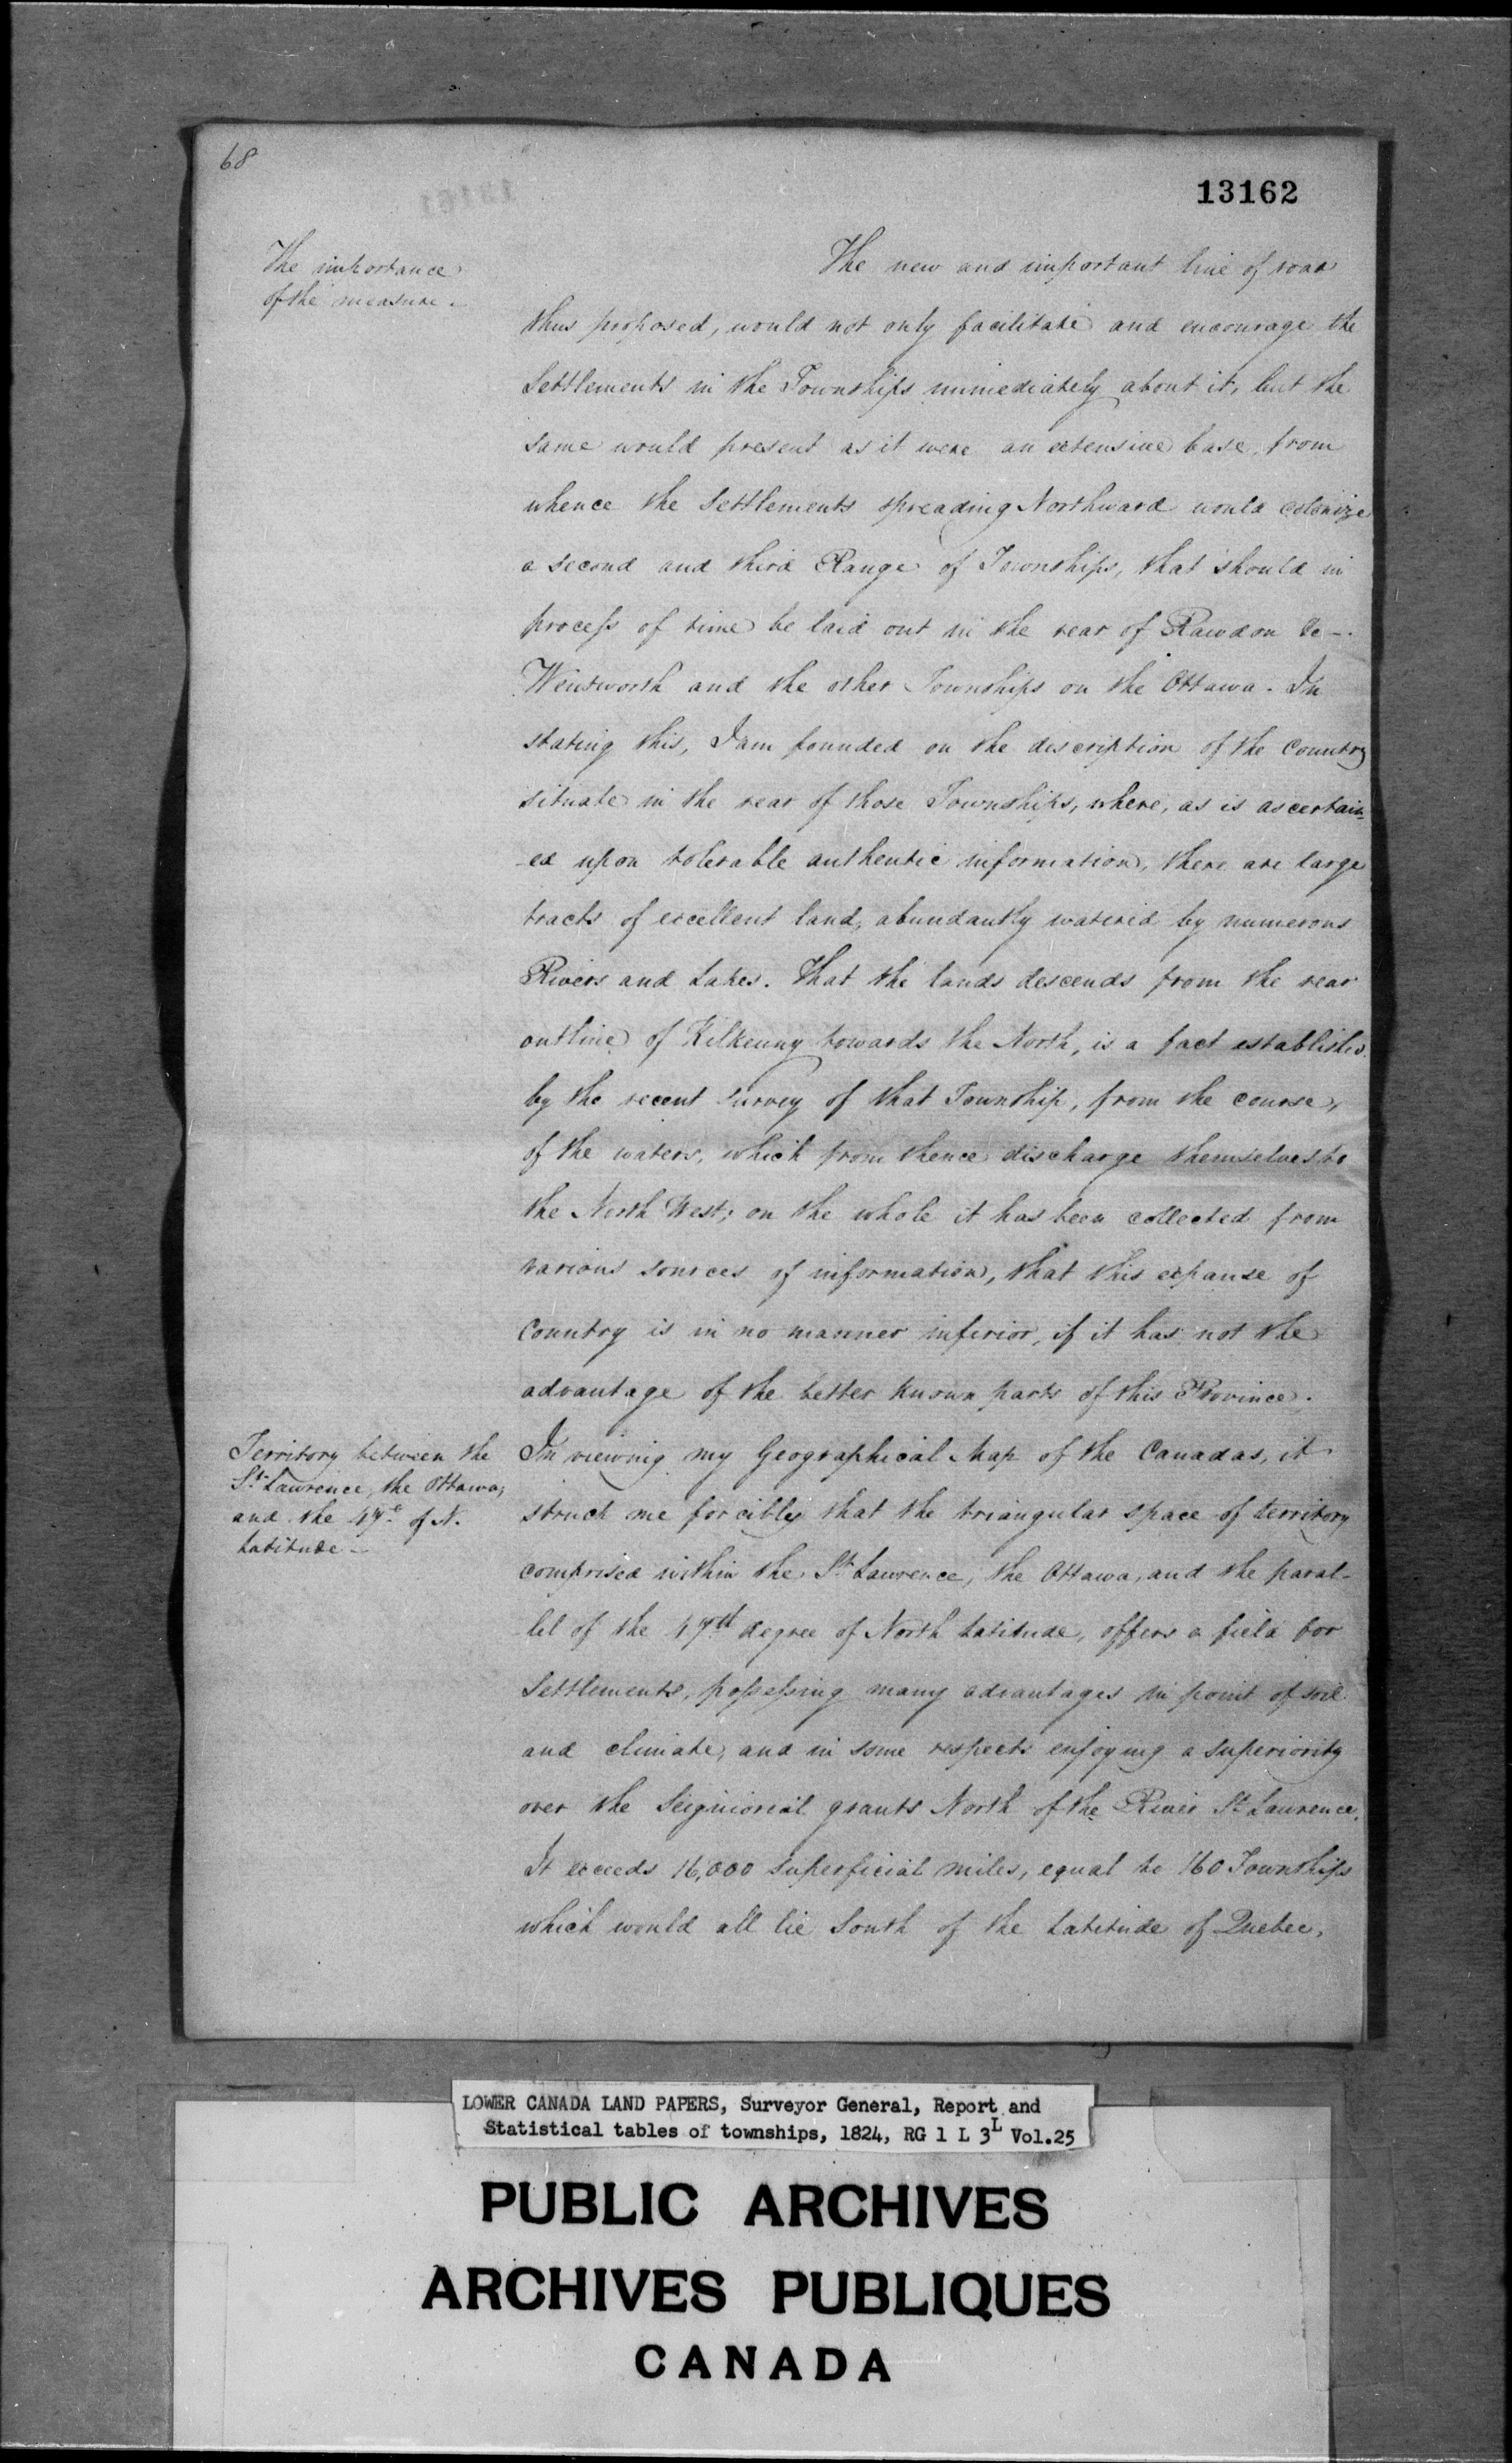 68
13162
The importance
of the measure.
The new and important line of road
thus proposed, would not only facilitate and encourage the
Settlements in the Townships immediately about it, but the
same would present as it were an extensive base, from
whence the Settlements spreading Northward would colonize
a second and third Range of Townships, that should in
process of time be laid out in the rear of Rawdon &c—.
Wentworth and the other Townships on the Ottawa. In
stating this, I am founded on the description of the Country
situate in the rear of those Townships, where, as is ascertain-
-ed upon tolerable authentic information, there are large
tracts of excellent land, abundantly watered by numerous
Rivers and Lakes. That the lands descends from the rear
outline of Kilkenny towards the North, is a fact established
by the recent survey of that Township, from the course,
of the waters, which from thence discharge themselves to
the North West; on the whole it has been collected from
various sources of information, that this expanse of
Country is in no manner inferior, if it has not the
advantage of the better known parts of this Province.
Territory between the
St. Lawrence, the Ottawa,
and the 47e. of N.
Latitude—
In viewing my Geographical Map of the Canadas, it
struck me forcibly that the triangular space of territory
comprised within the St. Lawrence, the Ottawa, and the paral-
-lel of the 47th degree of North Latitude, offers a field for
Settlements, possessing many advantages in point of soil
and climate, and in some respects enjoying a superiority
over the Seigniorial grants North of the River St. Lawrence.
It exceeds 16,000 superficial miles, equal to 160 Townships
which would all lie South of the Latitude of Quebec,
LOWER CANADA LAND PAPERS, Surveyor General, Report and
Statistical tables of townships, 1824, RG 1 L 3L Vol.25
PUBLIC ARCHIVES
ARCHIVES PUBLIQUES
CANADA